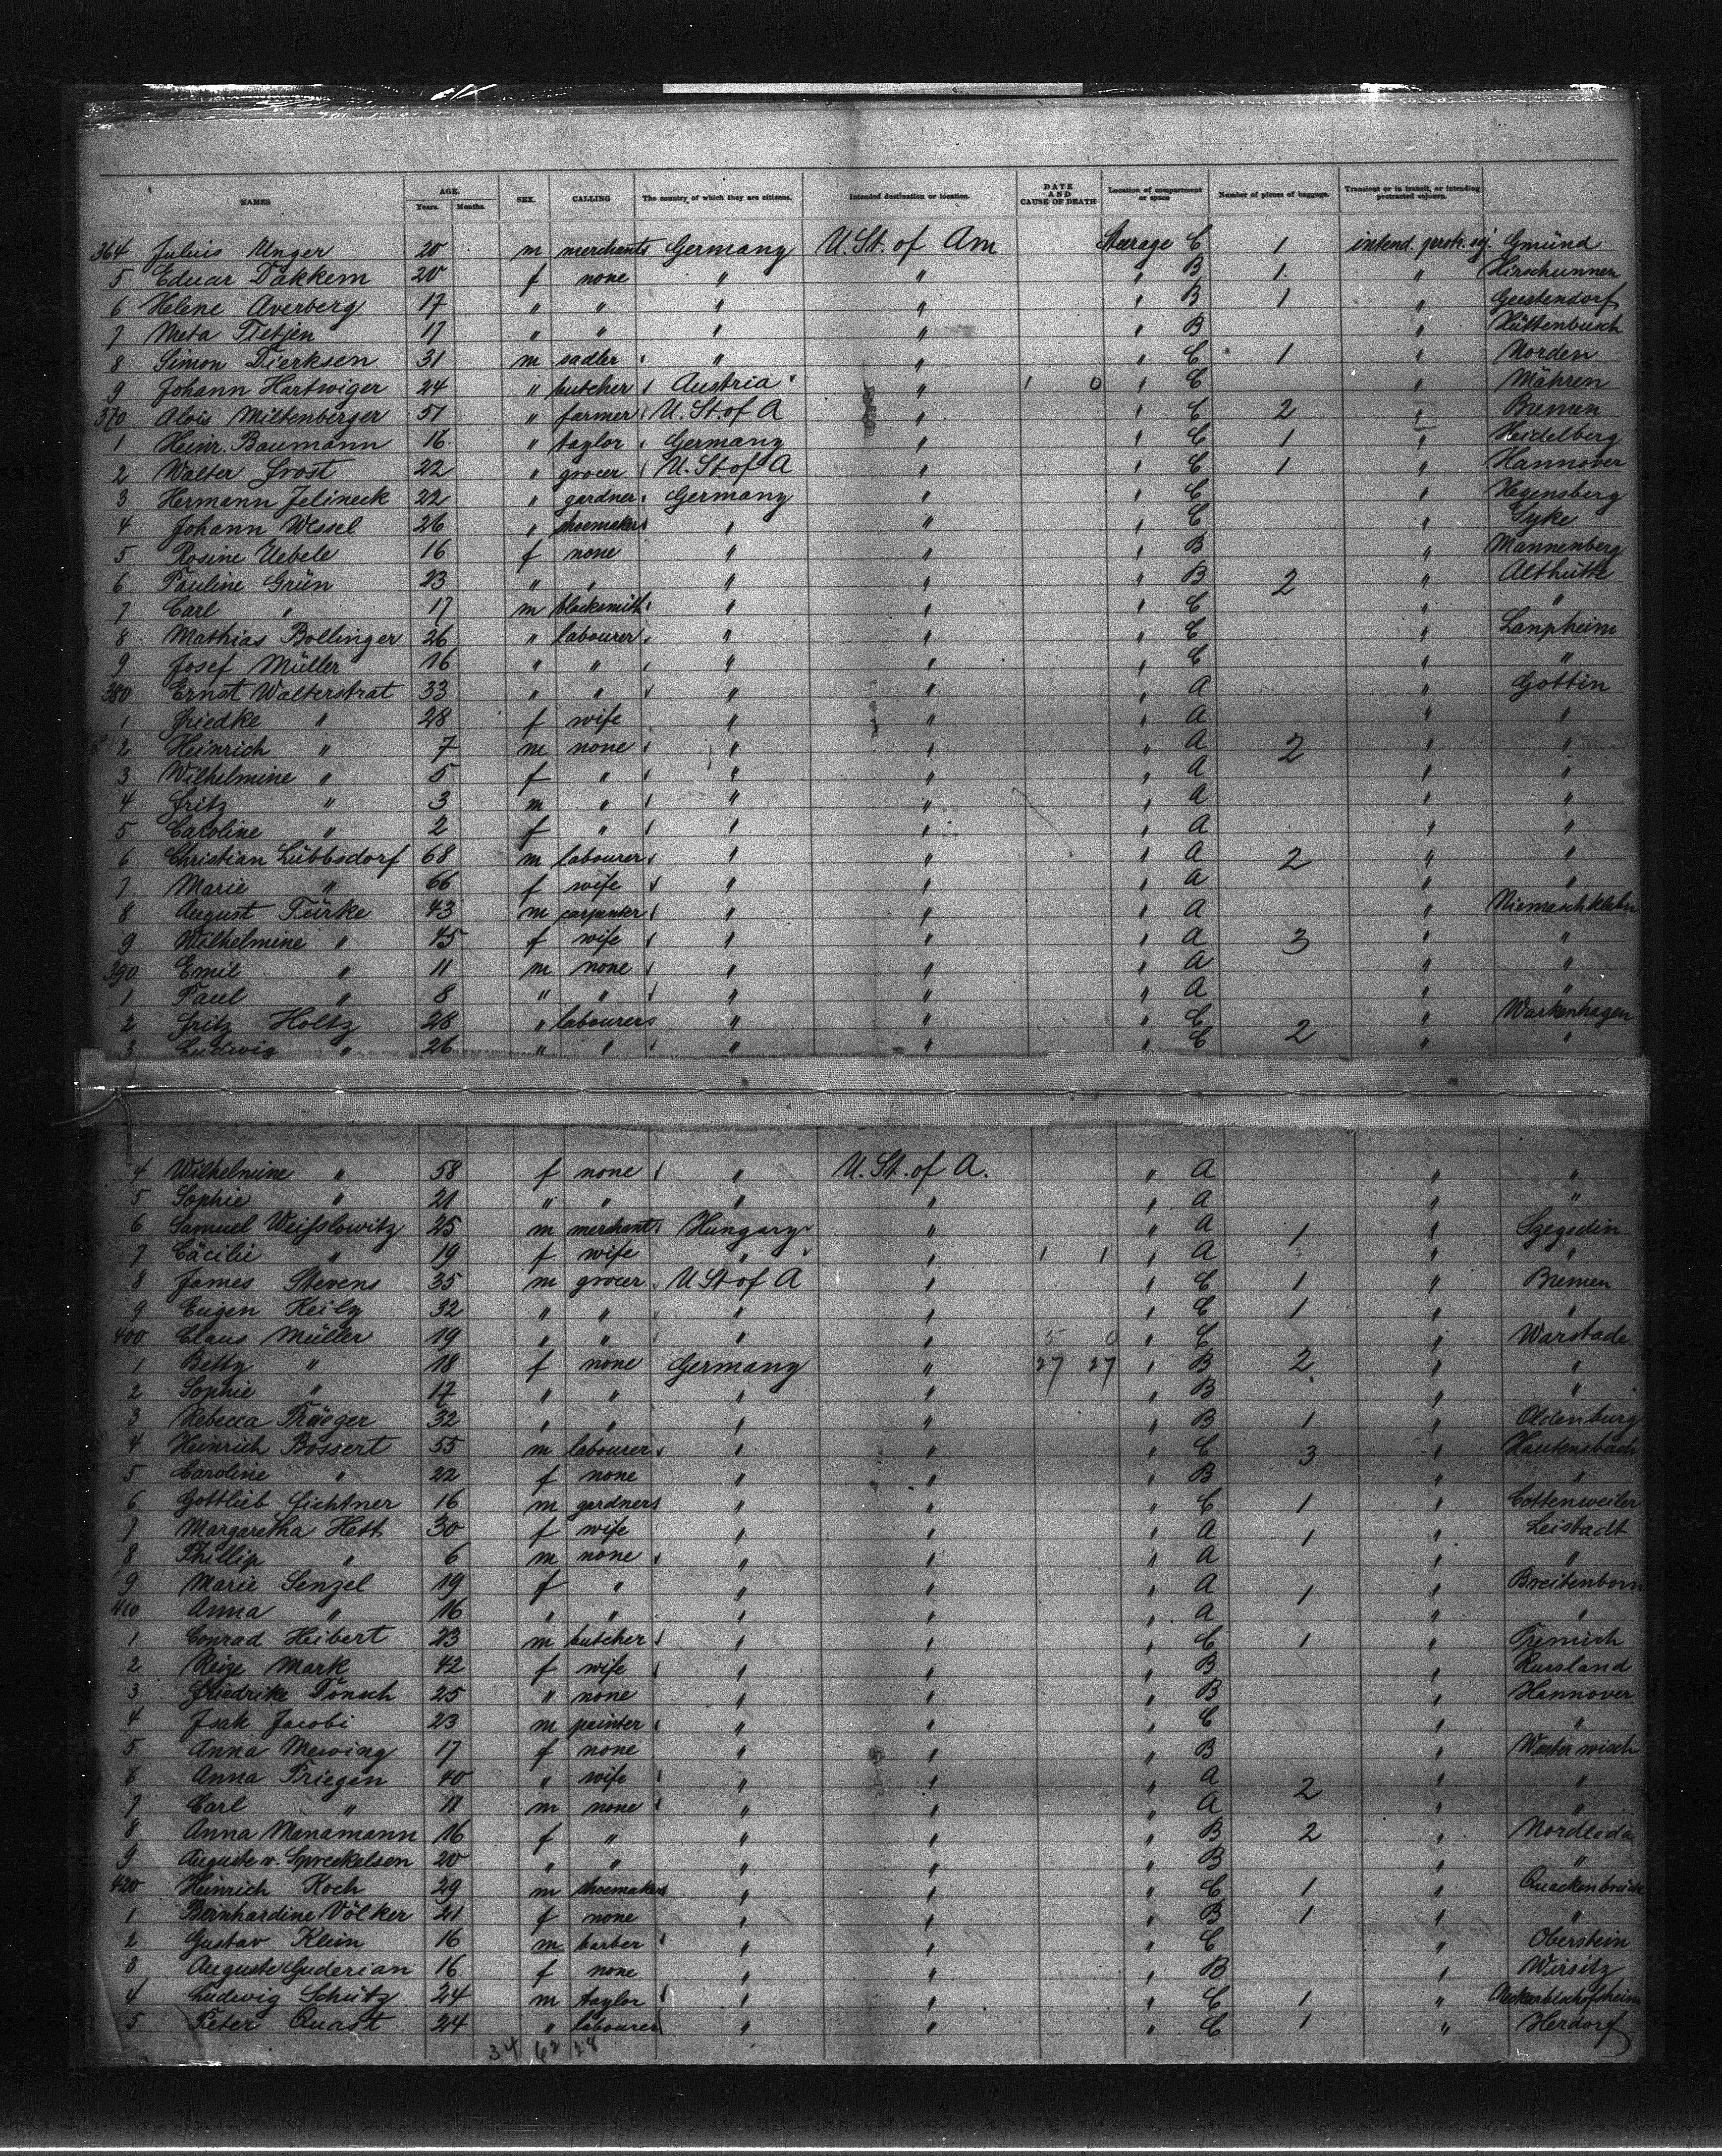 NAMES AGE. Years. Months. SEX. CALLING The country of which they are citizens. Intended destination or location. DATE AND CAUSE OF DEATH Location of compartment or space Number of pieces of baggage. Transient or in transit, or intending protracted sojourn.
364 Julius Unger 20 m merchant Germany U. St. of Am Steerage C 1 intend. protr. soj. Gmünd
5 Eduar Dakkem 20 f none " " " B 1 "
6 Helene Averberg 17 " " " " " B 1 " Geestendorf
7 Meta Tietjen 17 " " " " " B " Hüttenbusch
8 Simon Dierksen 31 m sadler " " " C 1 " Norden
9 Johann Hartwiger 24 " butcher Austria " 1 0 " C " Mähren
370 Alois Miltenberger 51 " farmer U. St. of A " " C 2 " Bremen
1 Heinr. Baumann 16 " taylor Germany " " C 1 " Heidelberg
2 Walter Frost 22 " grocer U. St. of A " " C 1 " Hannover
3 Hermann Jelineck 22 " gardner Germany " " C " Hegensberg
4 Johann Wessel 26 " shoemaker " " " C " Syke
5 Rosine Uebele 16 f none " " " B " Mannenberg
6 Pauline Grün 23 " " " " " B 2 " Althütte
7 Carl " 17 m blacksmith " " " C " "
8 Mathias Bollinger 26 " labourer " " " C " Laupheim
9 Josef Müller 16 " " " " " C " "
380 Ernst Walterstrat 33 " " " " " A " Gottin
1 Friedke " 28 f wife " " " A " "
2 Heinrich " 7 m none " " " A 2 " "
3 Wilhelmine " 5 f " " " " A " "
4 Fritz " 3 m " " " " A " "
5 Caroline " 2 f " " " " A " "
6 Christian Lübbsdorf 68 m labourer " " " A 2 " "
7 Marie " 66 f wife " " " A " "
8 August Türke 43 m carpenter " " " A "
9 Wilhelmine " 45 f wife " " " A 3 " "
390 Emil " 11 m none " " " A " "
1 Paul " 8 " " " " " A " "
2 Fritz Holtz 28 " labourer " " " C " Warkenhagen
3 Ludwig " 26 " " " " " C 2 " "
4 Wilhelmine " 58 f none " U. St. of A. " A " "
5 Sophie " 21 " " " " " A " "
6 Samuel Weißlowitz 25 m merchant Hungary " " A 1 " Szegedin
7 Cäcilie " 19 f wife " " 1 1 " A " "
8 James Stevens 35 m grocer U St of A " " C 1 " Bremen
9 Eugen Keily 32 " " " " " C 1 " "
400 Claus Müller 19 " " " " 5 0 " C " Warstade
1 Betty " 18 f none Germany " 27 27 " B 2 " "
2 Sophie " 17 " " " " " B " "
3 Rebecca Träeger 32 " " " " " B 1 " Oldenburg
4 Heinrich Bossert 55 m labourer " " " C 3 " Hautensbach
5 Caroline " 22 f none " " " B " "
6 Gottlieb Lichtner 16 m gardner " " " C 1 " Cottenweiler
7 Margaretha Hett 30 f wife " " " A 1 " Leistadt
8 Phillip " 6 m none " " " A " "
9 Marie Senzel 19 f " " " " A 1 " Breitenborn
410 Anna " 16 " " " " " A " "
1 Conrad Heibert 23 m butcher " " " C 1 "
2 Reize Mark 42 f wife " " " B " Russland
3 Friedrike Tönsch 25 " none " " " B " Hannover
4 Isak Jacobi 23 m peinter " " " C " "
5 Anna Mewing 17 f none " " " B " Westerwisch
6 Anna Priegen 40 " wife " " " A 2 " "
7 Carl " 11 m none " " " A " "
8 Anna Manamann 16 f " " " " B 2 " Nordleda
9 Auguste v. Spreckelsen 20 " " " " " B "
420 Heinrich Koch 29 m shoemaker " " " C 1 " Quackenbrück
1 Bernhardine Völker 21 f none " " " B 1 " "
2 Gustav Klein 16 m barber " " " C " Oberstein
3 Auguste Guderian 16 f none " " " B " Wirsitz
4 Ludwig Schütz 24 m taylor " " " C 1 " Neckarbischofsheim
5 Peter Quast 24 " labourer " " " C 1 " Herdorf
34 62 28